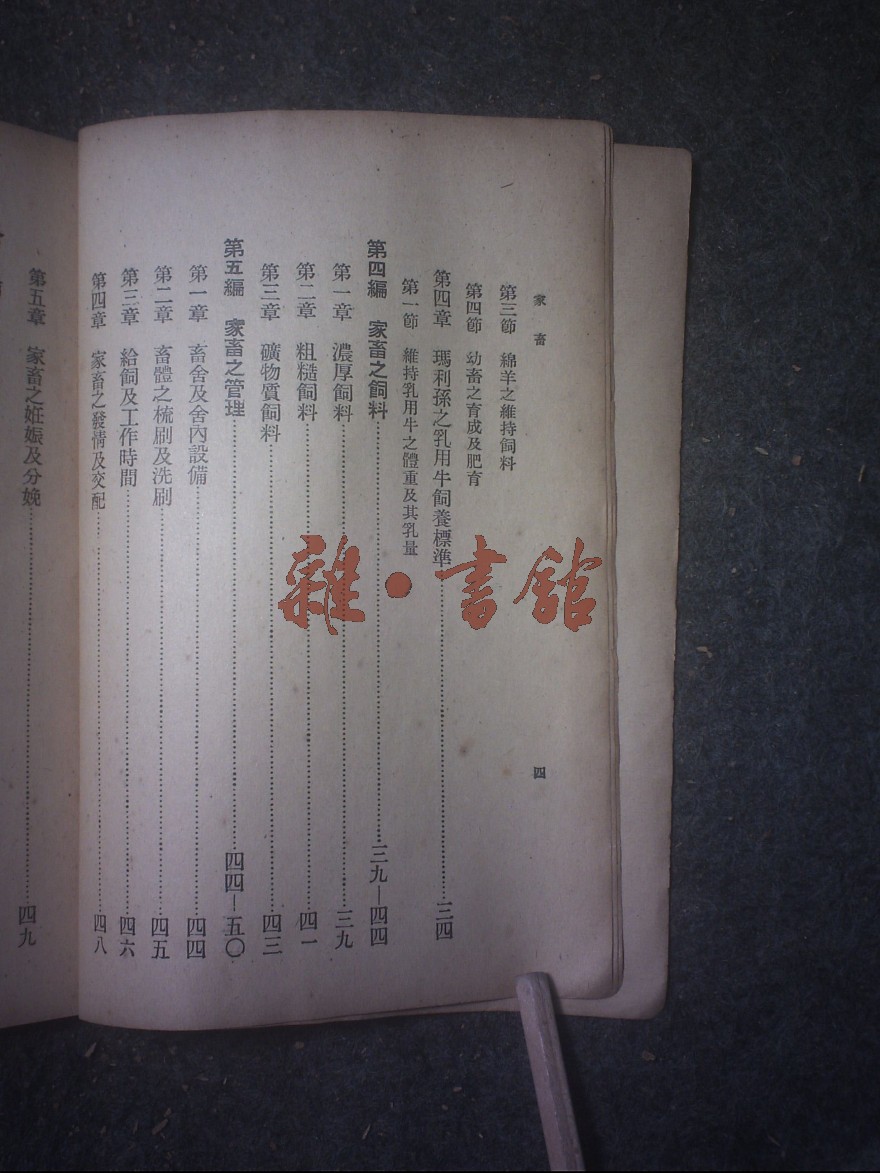 家畜
四
第三節 綿羊之維持飼料
第四節 幼畜之育成及肥育
第四章 瑪利孫之乳用牛飼養標準……三四
第一節 維持乳用牛之體重及其乳量
第四編 家畜之飼料……三九—四四
第一章 濃厚飼料……三九
第二章 粗糙飼料……四一
第三章 礦物質飼料……四三
第五編 家畜之管理……四四—五〇
第一章 畜舍及舍內設備……四四
第二章 畜體之梳刷及洗刷……四五
第三章 給飼及工作時間……四六
第四章 家畜之發情及交配……四八
第五章 家畜之妊娠及分娩……四九
雜·書館